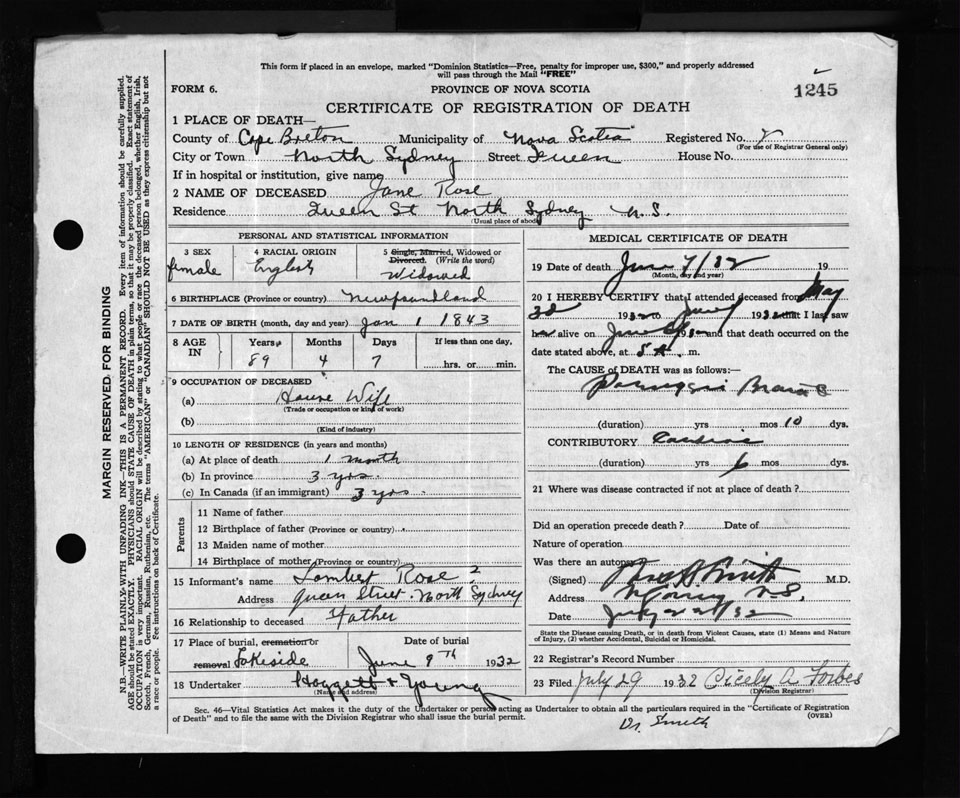 This form if placed in an envelope, marked "Dominion Statistics—Free, penalty for improper use, $300," and properly addressed
will pass through the Mail "FREE"
FORM 6. PROVINCE OF NOVA SCOTIA 1245
CERTIFICATE OF REGISTRATION OF DEATH
1 PLACE OF DEATH—
County of Cape Breton Municipality of Nova Scotia Registered No.
(For use of Registrar General only)
City or Town North Sydney Street Queen House No.
If in hospital or institution, give name
2 NAME OF DECEASED Jane Rose
Residence Queen St North Sydney N.S.
(Usual place of abode)
PERSONAL AND STATISTICAL INFORMATION
3 SEX female
4 RACIAL ORIGIN English
5 Single, Married, Widowed or
Divorced. (Write the word)
Widowed
6 BIRTHPLACE (Province or country) Newfoundland
7 DATE OF BIRTH (month, day and year) Jan 1 1843
8 AGE IN Years Months Days If less than one day,
89 4 7 hrs. or min.
9 OCCUPATION OF DECEASED
(a) House Wife
(Trade or occupation or kind of work)
(b)
(Kind of industry)
10 LENGTH OF RESIDENCE (in years and months)
(a) At place of death 1 month
(b) In province 3 yrs.
(c) In Canada (if an immigrant) 3 yrs.
Parents
11 Name of father
12 Birthplace of father (Province or country)
13 Maiden name of mother
14 Birthplace of mother (Province or country)
15 Informant's name Lambert Rose ?
Address Queen Street. North Sydney
16 Relationship to deceased Father
17 Place of burial, cremation or Date of burial
removal Lakeside June 9th 1932
18 Undertaker & Young
(Name and address)
MEDICAL CERTIFICATE OF DEATH
19 Date of death June 7/32 19
(Month, day and year)
20 I HEREBY CERTIFY that I attended deceased from May
3d 1932 to June 1932 that I last saw
h alive on June 19 and that death occurred on
date stated above, at 5 A. m.
The CAUSE of DEATH was as follows:—
(duration) yrs mos 10 dys.
CONTRIBUTORY Cardiac
(duration) yrs 6 mos dys.
21 Where was disease contracted if not at place of death?
Did an operation precede death? Date of
Nature of operation
Was there an autopsy
(Signed) Smith M.D.
Address N.S.
Date July 32
State the Disease causing Death, or in death from Violent Causes, state (1) Means and Nature
of Injury, (2) whether Accidental, Suicidal or Homicidal.
22 Registrar's Record Number
23 Filed July 29 1932 Cicely A. Forbes
(Division Registrar)
Sec. 46—Vital Statistics Act makes it the duty of the Undertaker or person acting as Undertaker to obtain all the particulars required in the "Certificate of Registration
of Death" and to file the same with the Division Registrar who shall issue the burial permit. (OVER)
Dr. Smith
MARGIN RESERVED FOR BINDING
N.B.—WRITE PLAINLY WITH UNFADING INK—THIS IS A PERMANENT RECORD. Every item of information should be carefully supplied.
AGE should be stated EXACTLY. PHYSICIANS should STATE CAUSE OF DEATH in plain terms, so that it may be properly classified. Exact statement of
OCCUPATION is very important. RACIAL ORIGIN will be described by stating to what people or race the deceased person belonged, whether English, Irish,
Scotch, French, German, Russian, Ruthenian, etc. The terms "AMERICAN" or "CANADIAN" SHOULD NOT BE USED as they express citizenship but not
a race or people. See instructions on back of Certificate.